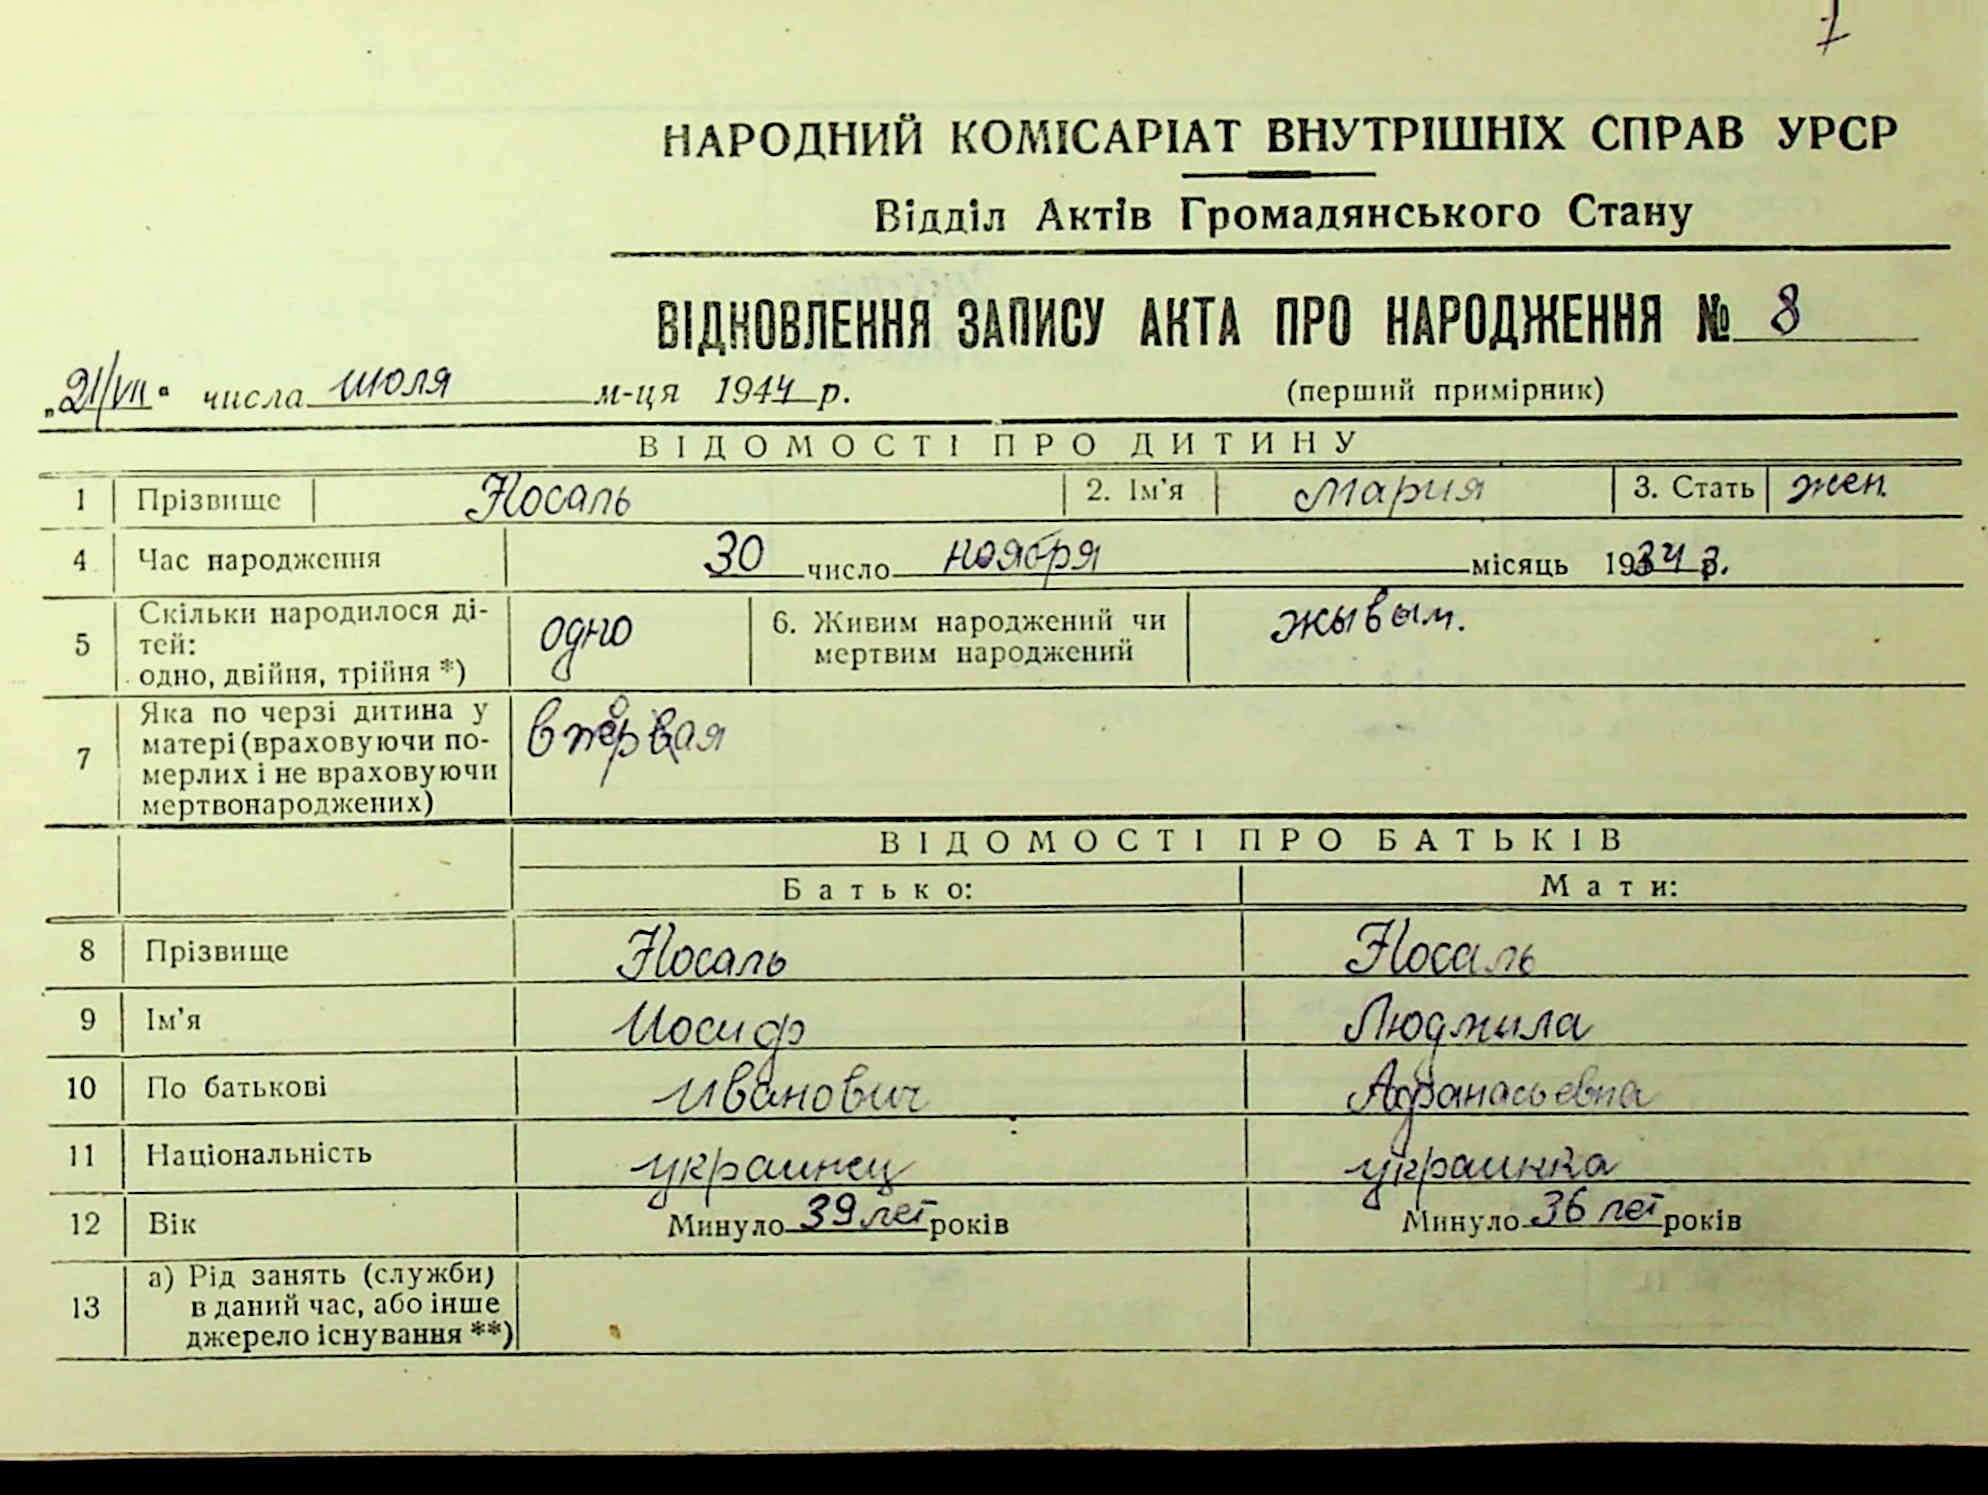 7
НАРОДНИЙ КОМІСАРІАТ ВНУТРІШНІХ СПРАВ УРСР
Відділ Актів Громадянського Стану
ВІДНОВЛЕННЯ ЗАПИСУ АКТА ПРО НАРОДЖЕННЯ № 8
„21/VII“ числа июля м-ця 1944 р. (перший примірник)
ВІДОМОСТІ ПРО ДИТИНУ
1 Прізвище Носаль 2. Ім'я Мария 3. Стать жен.
4 Час народження 30 число ноября місяць 1934 р.
5 Скільки народилося ді-
тей:
одно, двійня, трійня *) одно 6. Живим народжений чи
мертвим народжений жывым.
7 Яка по черзі дитина у
матері (враховуючи по-
мерлих і не враховуючи
мертвонароджених) впервая
ВІДОМОСТІ ПРО БАТЬКІВ
Батько: Мати:
8 Прізвище Носаль Носаль
9 Ім'я Иосиф Людмила
10 По батькові Иванович Афанасьевна
11 Національність украинец украинка
12 Вік Минуло 39 лет років Минуло 36 лет років
13 а) Рід занять (служби)
в даний час, або інше
джерело існування **)